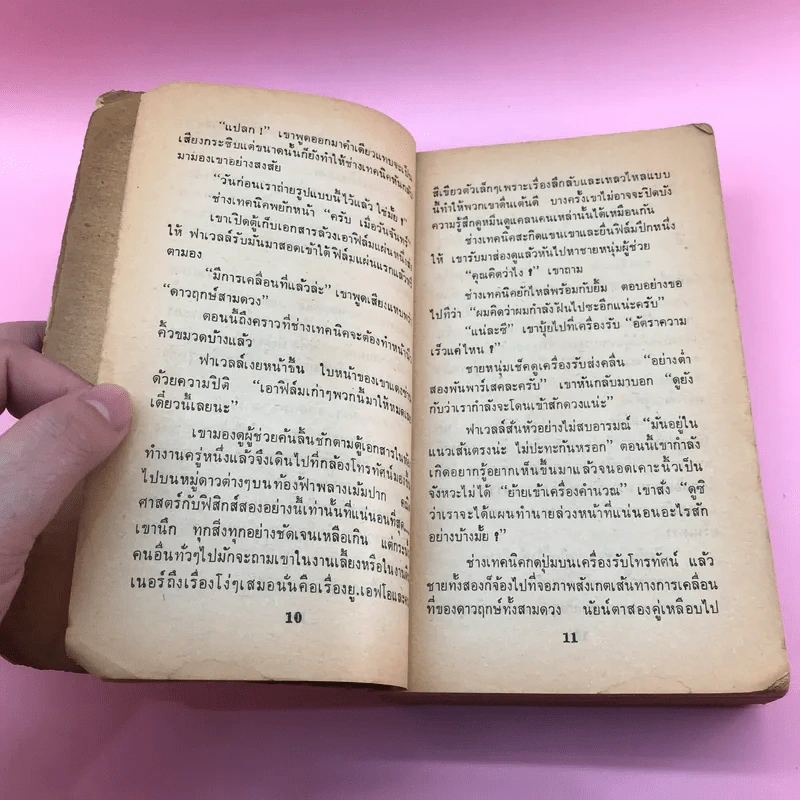 “แปลก !” เขาพูดออกมาคำเดียวแทบจะเป็น
เสียงกระซิบแต่ขนาดนั้นก็ยังทำให้ช่างเทคนิคหันกลับ
มามองเขาอย่างสงสัย
“วันก่อนเราถ่ายรูปแบบนี้ไว้แล้ว ใช่มั้ย ?”
ช่างเทคนิคพยักหน้า “ครับ เมื่อวันจันทร์”
เขาเปิดตู้เก็บเอกสารล้วงเอาฟิล์มแผ่นหนึ่งส่ง
ให้ ฟาเวลล์รับมันมาสอดเข้าใต้ฟิล์มแผ่นแรกแล้ว
ตามอง
“มีการเคลื่อนที่แล้วล่ะ” เขาพูดเสียงแหบพร่า
“ดาวฤกษ์สามดวง”
ตอนนี้ถึงคราวที่ช่างเทคนิคจะต้องทำหน้า
คิ้วขมวดบ้างแล้ว
ฟาเวลล์เงยหน้าขึ้น ใบหน้าของเขาแดงซ่าน
ด้วยความปิติ “เอาฟิล์มเก่าๆพวกนี้มาให้หมดเลย
เดี๋ยวนี้เลยนะ”
เขามองดูผู้ช่วยค้นลิ้นชักตามตู้เอกสารใน
ทำงานครู่หนึ่งแล้วจึงเดินไปที่กล้องโทรทัศน์มอง
ไปบนหมู่ดาวต่างๆบนท้องฟ้าพลางเม้มปาก คณิต
ศาสตร์กับฟิสิกส์สองอย่างนี้เท่านั้นที่แน่นอนที่สุด
เขานึก ทุกสิ่งทุกอย่างชัดเจนเหลือเกิน แต่กระนั้น
คนอื่นทั่วๆไปมักจะถามเขาในงานเลี้ยงหรือในงาน
เนอร์ถึงเรื่องโง่ๆเสมอนั่นคือเรื่องยู.เอฟโอและ
10
สีเขียวตัวเล็กๆเพราะเรื่องลึกลับและเหลวไหลแบบ
นี้ทำให้พวกเขาตื่นเต้นดี บางครั้งเขาไม่อาจจะปิดบัง
ความรู้สึกดูหมิ่นดูแคลนคนเหล่านั้นได้เหมือนกัน
ช่างเทคนิคสะกิดแขนเขาและยื่นฟิล์มปึกหนึ่ง
ให้ เขารับมาส่องดูแล้วหันไปหาชายหนุ่มผู้ช่วย
“คุณคิดว่าไง ?” เขาถาม
ช่างเทคนิคยักไหล่พร้อมกับยิ้ม ตอบอย่างขอ
ไปทีว่า “ผมคิดว่าผมกำลังฝันไปซะอีกแน่ะครับ”
“แน่ละซี” เขาบุ้ยไปที่เครื่องรับ “อัตราความ
เร็วแค่ไหน ?”
ชายหนุ่มเช็คดูเครื่องรับส่งคลื่น “อย่างต่ำ
สองพันพาร์เสคละครับ” เขาหันกลับมาบอก “ดูยัง
กับว่าเรากำลังจะโดนเข้าสักดวงแน่ะ”
ฟาเวลล์สั่นหัวอย่างไม่สบอารมณ์ “มันอยู่ใน
แนวเส้นตรงน่ะ ไม่ปะทะกันหรอก” ตอนนี้เขากำลัง
เกิดอยากรู้อยากเห็นขึ้นมาแล้วจนอดเคาะนิ้วเป็น
จังหวะไม่ได้ “ย้ายเข้าเครื่องคำนวณ” เขาสั่ง “ดูซิ
ว่าเราจะได้แผนทำนายล่วงหน้าที่แน่นอนอะไรสัก
อย่างบ้างมั้ย ?”
ช่างเทคนิคกดปุ่มบนเครื่องรับโทรทัศน์ แล้ว
ชายทั้งสองก็จ้องไปที่จอภาพสังเกตเส้นทางการเคลื่อน
ที่ของดาวฤกษ์ทั้งสามดวง นัยน์ตาสองคู่เหลือบไป
11